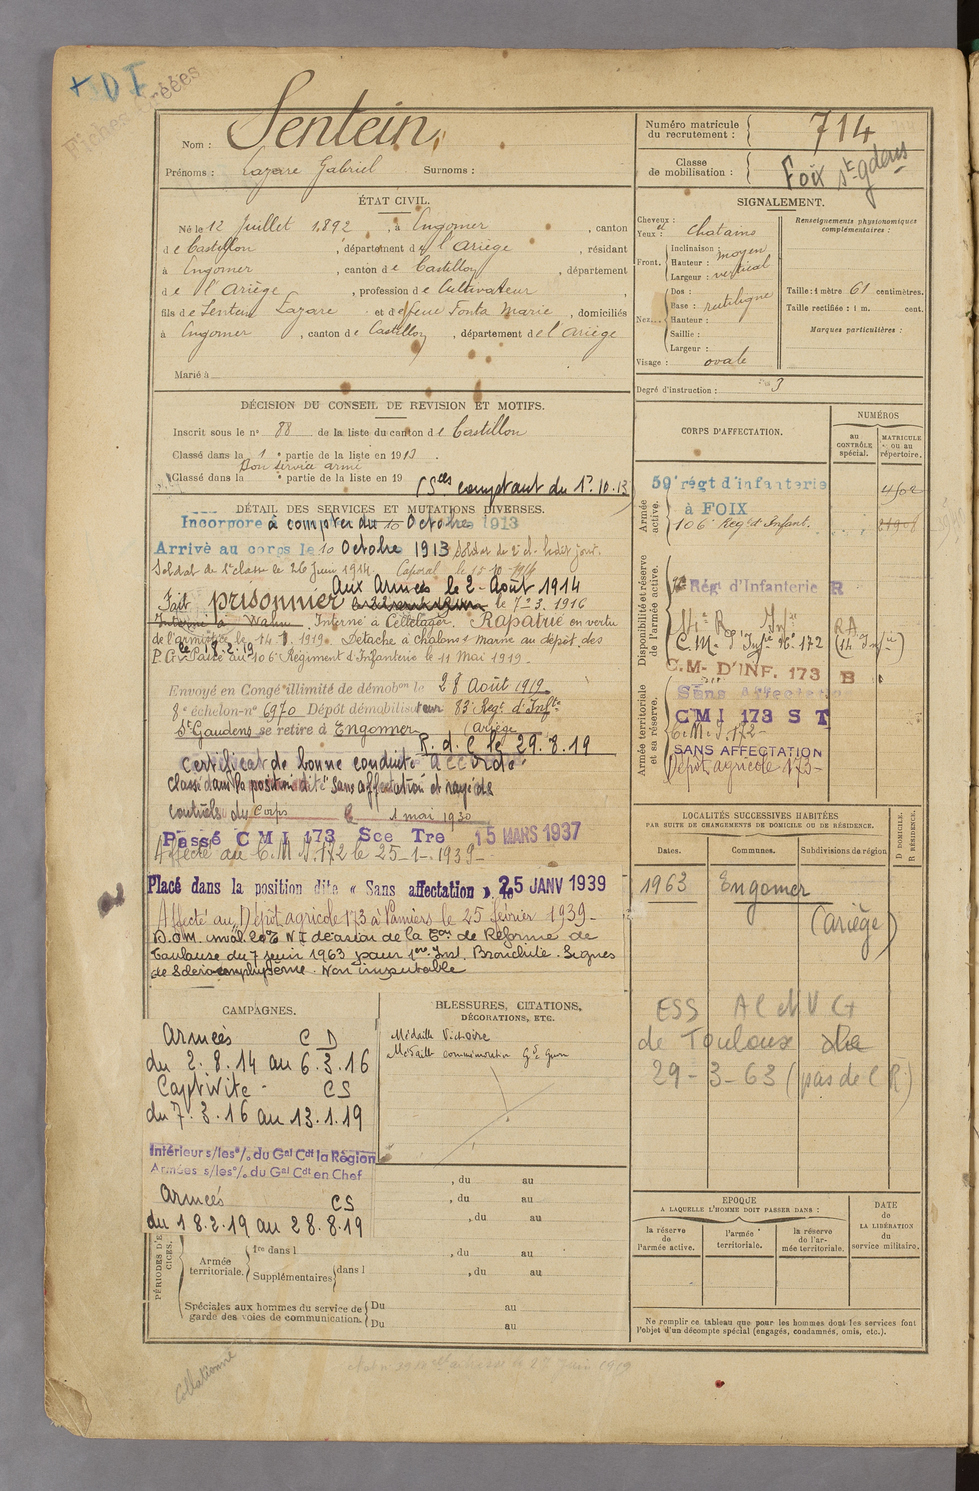 + D I
Fiches Créées
Nom : Sentein
Prénoms : Lazare Gabriel Surnoms :
ÉTAT CIVIL.
Né le 12 Juillet 1892, à Engomer, canton
de Castillon, département de l'Ariège, résidant
à Engomer, canton de Castillon, département
de l'Ariège, profession de Cultivateur,
fils de Sentein Lazare et de feue Fonta Marie, domiciliés
à Engomer, canton de Castillon, département de l'Ariège
Marié à
DÉCISION DU CONSEIL DE REVISION ET MOTIFS.
Inscrit sous le n° 88 de la liste du canton de Castillon
Classé dans la 1e partie de la liste en 1913.
Bon service armé
Classé dans la e partie de la liste en 19
(Sces comptant du 1er.10.13
DÉTAIL DES SERVICES ET MUTATIONS DIVERSES.
Incorporé à compter du 10 Octobre 1913
Arrivé au corps le 10 Octobre 1913 Soldat de 2e cl. ledit jour.
Soldat de 1e classe le 26 Juin 1914. Caporal le 15 10 1914
Aux Armées le 2 Août 1914
Fait prisonnier le 7-3. 1916
Interné à Celtelager. Rapatrié en vertu
de l'armistice le 14.1.1919. Détaché à Chalons s Marne au dépôt des
le 18.2.19
P.G. Passé au 106e Régiment d'Infanterie le 11 Mai 1919.
Envoyé en Congé illimité de démobon le 28 Août 1919
8e échelon-n° 6970 Dépôt démobilisateur 83e Regt d'Infte
St Gaudens se retire à Engomer (Ariège
R. d. C le 29.8.19
Certificat de bonne conduite "ACCORDÉ"
Classé dans la position dite "Sans affectation et rayé des
contrôles du Corps le 1 mai 1930
Passé CMI 173 Sce Tre 15 MARS 1937
Affecté au C.M.I. 172 le 25-1-1939-
Placé dans la position dite « Sans affectation » le 25 JANV 1939
Affecté au Dépôt agricole 173 à Pamiers le 25 février 1939-
de Réforme de
Toulouse du 7 juin 1963 pour 1ere Inst. Bronchite. Signes
de Scléro-emphysème. Non imputable
CAMPAGNES.
Armées C D
du 2.8.14 au 6.3.16
Captivité - CS
du 7.3.16 au 13.1.19
Intérieur s/les o/. du Gal Cdt la Région
Armées s/les o/. du Gal Cdt en Chef
Armées CS
du 18.2.19 au 28.8.19
BLESSURES, CITATIONS,
DÉCORATIONS, ETC.
Médaille Victoire
Médaille commémorative Gde Guerre
, du au
, du au
, du au
PÉRIODES D'EXERCICES.
Armée territoriale.
1re dans l , du au
Supplémentaires dans l , du au
Spéciales aux hommes du service de
garde des voies de communication.
Du au
Du au
Numéro matricule
du recrutement : 714
Classe
de mobilisation :
Foix St-Gdens
SIGNALEMENT.
Cheveux : et
Yeux : chatains
Front.
Inclinaison : moyen
Hauteur :
Largeur : vertical
Nez
Dos :
Base : rectiligne
Hauteur :
Saillie :
Largeur :
Visage : ovale
Renseignements physionomiques
complémentaires :
Taille : 1 mètre 61 centimètres.
Taille rectifiée : 1 m. cent.
Marques particulières :
Degré d'instruction : 3
CORPS D'AFFECTATION.
NUMÉROS
au CONTRÔLE spécial.
MATRICULE ou au répertoire.
Armée active.
59e régt d'infanterie
à FOIX
106e Regt d'Infant.
Disponibilité et réserve de l'armée active.
Rég. d'Infanterie R
14e R Infie RA
C.M. d'Infie No 172 (14 Infie)
C.M. D'INF. 173 B
Armée territoriale et sa réserve.
Sans affectation
CMI 173 S T
C.M.I. 172-
SANS AFFECTATION
Dépôt agricole 173-
LOCALITÉS SUCCESSIVES HABITÉES
PAR SUITE DE CHANGEMENTS DE DOMICILE OU DE RÉSIDENCE.
Dates. Communes. Subdivisions de région
D DOMICILE.
R RÉSIDENCE.
1963 Engomer
(Ariège)
ESS
de Toulouse
29-3-63 (pas de C R)
EPOQUE
A LAQUELLE L'HOMME DOIT PASSER DANS :
la réserve de l'armée active.
l'armée territoriale.
la réserve de l'armée territoriale.
DATE
de
LA LIBÉRATION
du
service militaire.
Ne remplir ce tableau que pour les hommes dont les services font
l'objet d'un décompte spécial (engagés, condamnés, omis, etc.).
Collationné